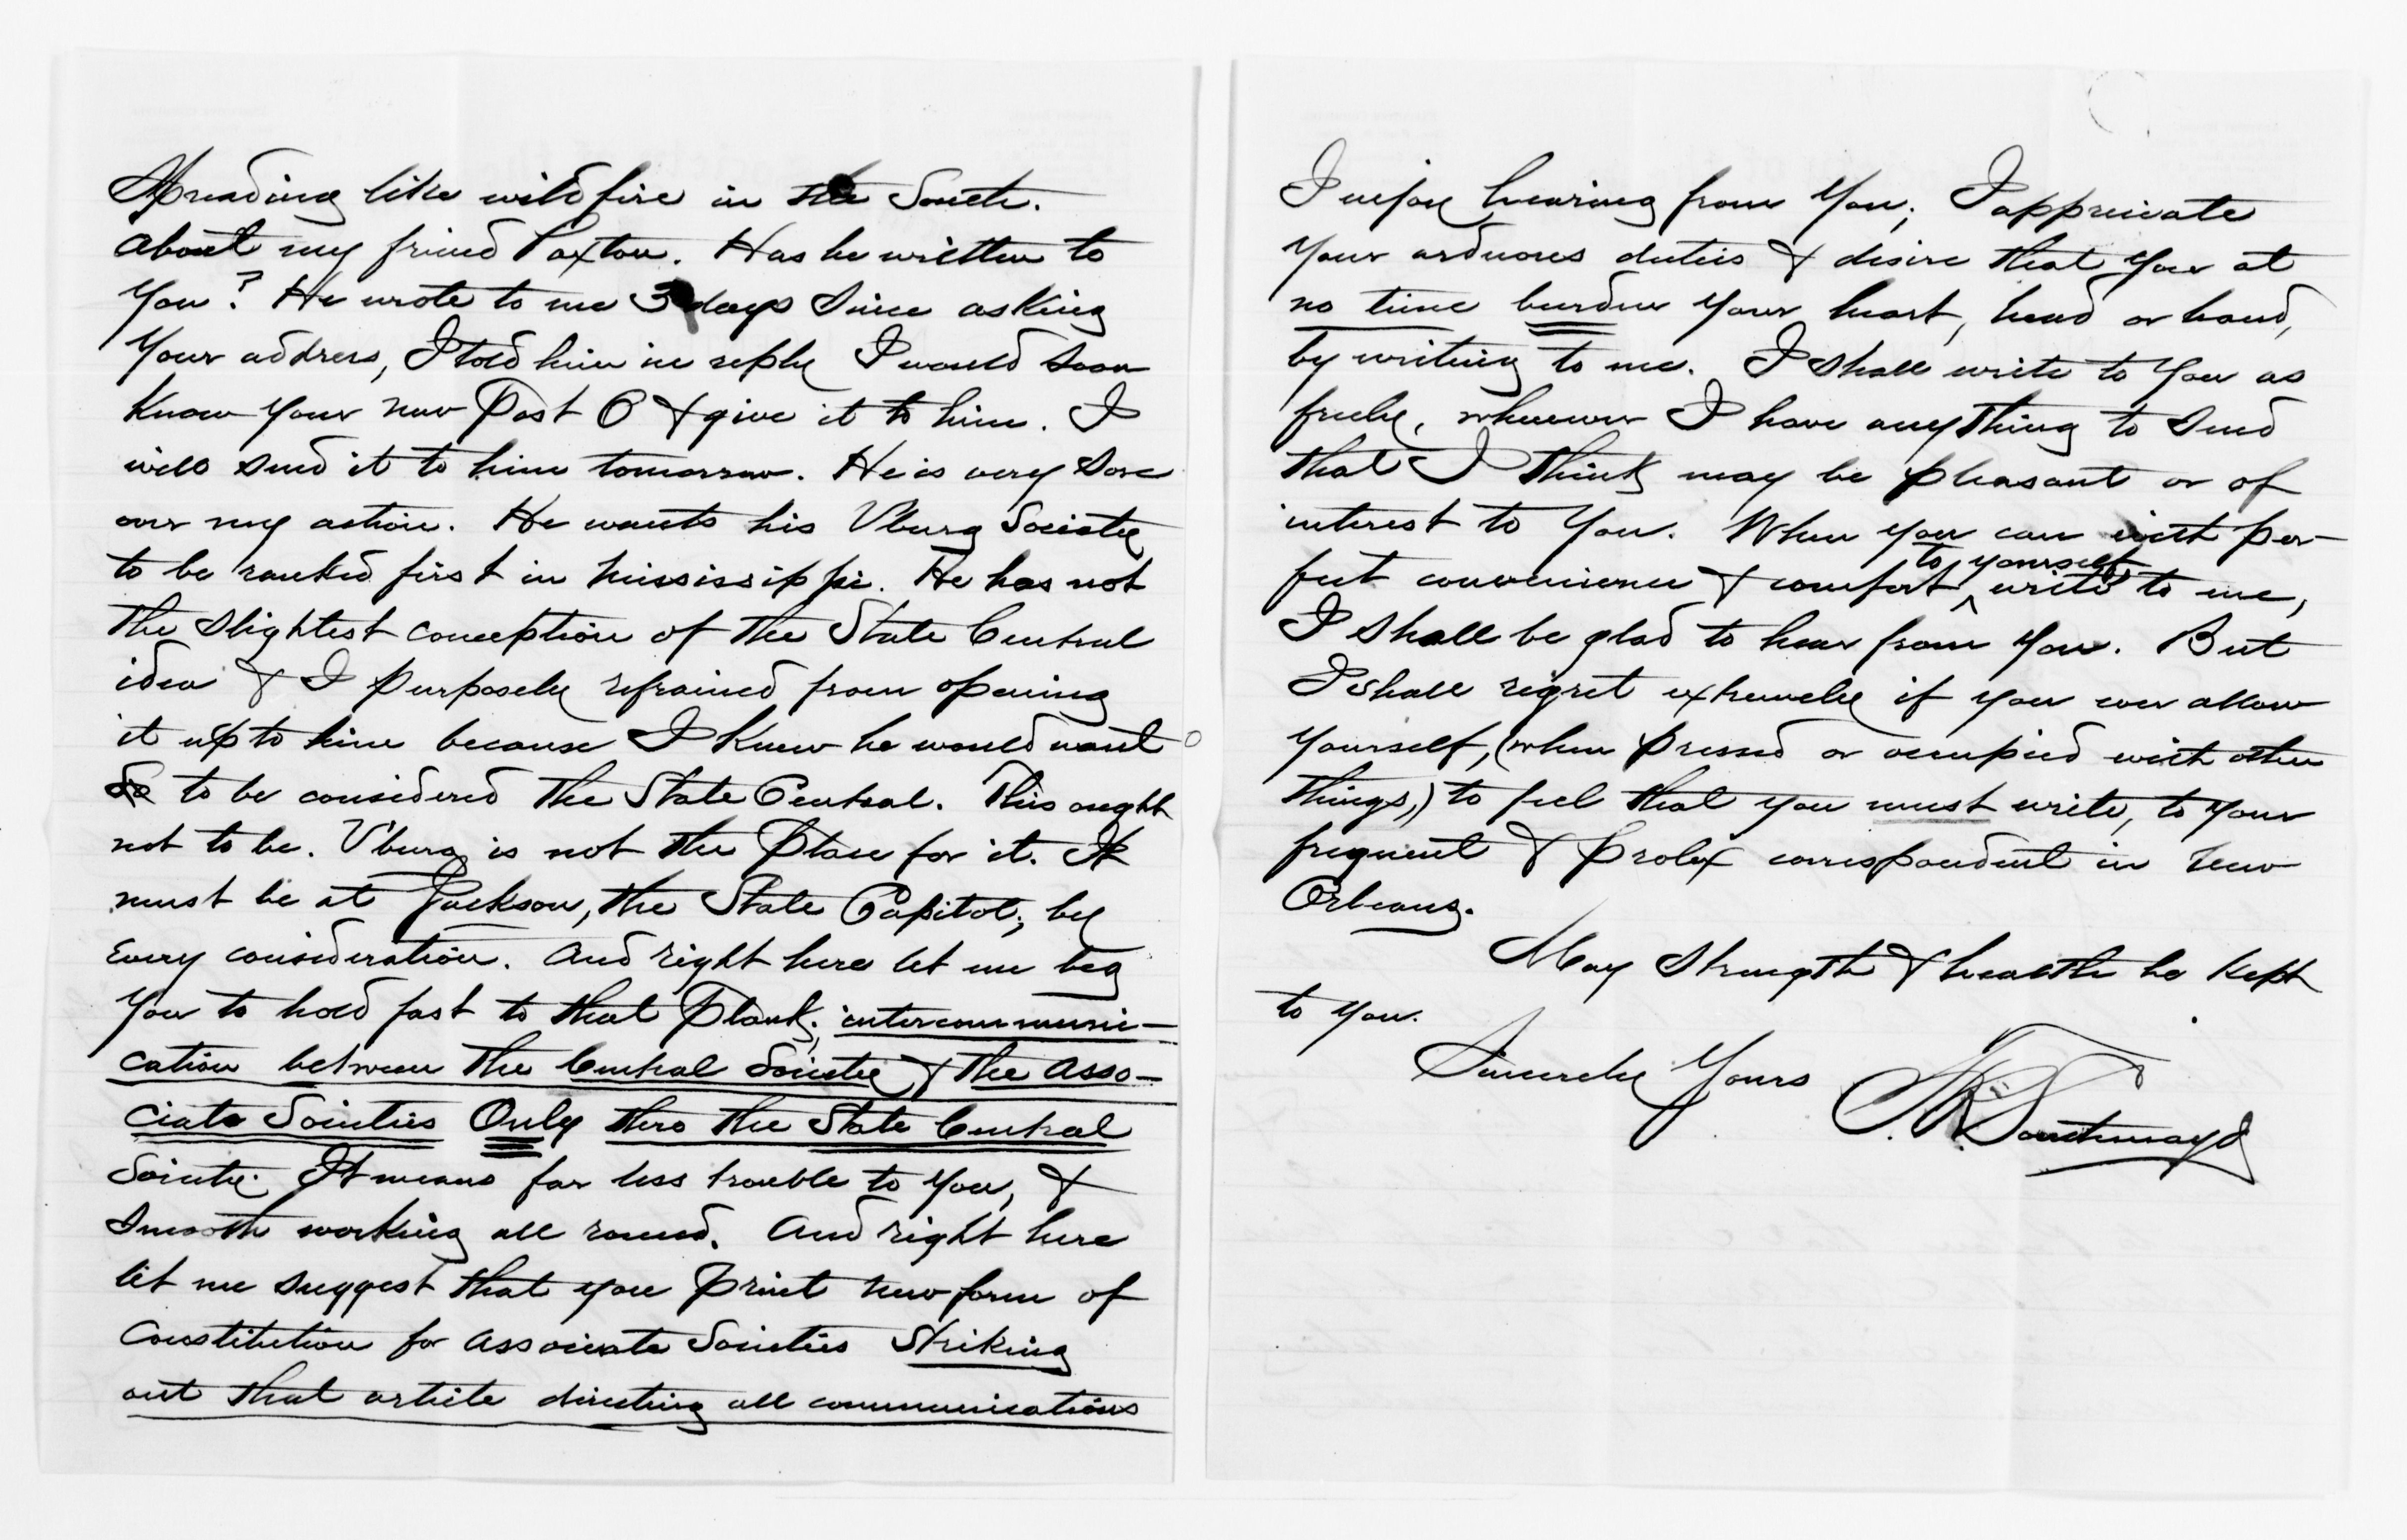 Spreading like wild fire in the South.
About my friend Paxton. Has he written to
You? He wrote to me 3 days since asking
Your address, I told him in reply I would soon
Know your new Post O & give it to him. I
will send it to him tomorrow. He is very sore
over my action. He wants his V'burg Society
to be ranked first in Mississippi. He has not
the slightest conception of the State Central
idea & I purposely refrained from opening
it up to him because I knew he would want
to be considered the State Central. This ought
not to be. V'burg is not the place for it. It
must be at Jackson, the State Capitol; by
every consideration. And right here let me beg
You to hold fast to that Plank; intercommuni-
cation between the Central Society & the Asso-
ciate Societies Only thro the State Central
Society. It means far less trouble to you, &
smooth working all round. And right here
let me suggest that you print new form of
Constitution for Associate Societies striking
out that article directing all communications
I enjoy hearing from You; I appreciate
Your arduous duties & desire that you at
no time burden your heart, head or hand,
by writing to me. I shall write to you as
freely, whenever I have anything to send
that I think may be pleasant or of
interest to You. When you can with per-
fect convenience & comfort to yourself write to me,
I shall be glad to hear from you. But
I shall regret extremely if you ever allow
Yourself, (when pressed or occupied with other
things,) to feel that you must write, to your
frequent & prolix correspondent in New
Orleans.
May strength & health be kept
to you.
Sincerely Yours
Southmayd